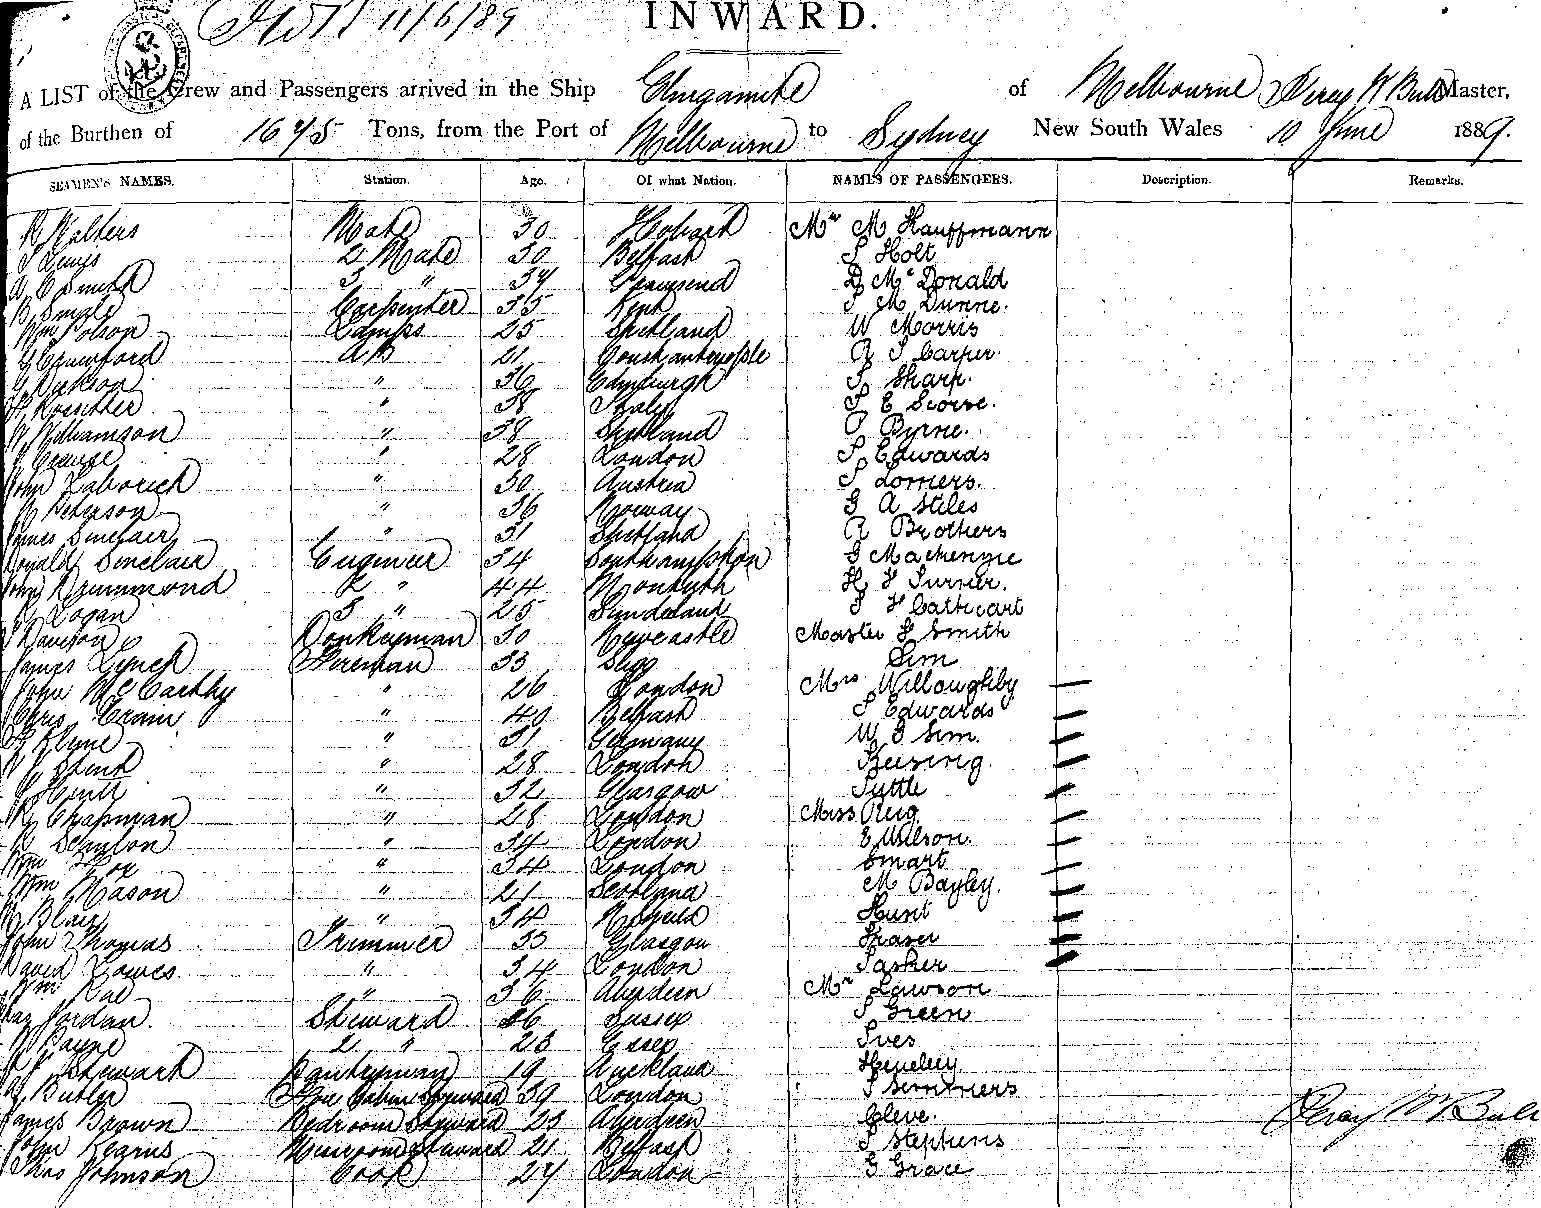 11/6/89
INWARD.
A LIST of the Crew and Passengers arrived in the Ship Elingamite of Melbourne Percy W Bull Master,
of the Burthen of 1675 Tons, from the Port of Melbourne to Sydney New South Wales 10 June 1889.
SEAMEN'S NAMES. Station. Age. Of what Nation. NAMES OF PASSENGERS. Description. Remarks.
Walters Mate 30 Hobart Mr M Kauffmann
2 Mate 30 Belfast Holt
Smith 3 " Gravesend D McDonald
Carpenter 35 Kent M Dunne.
Wm Polson Lamps 25 Shetland W Morris
G Crawford AB 21 Constantinople Carper.
" 36 Edinburgh Sharp.
" 38 Italy
W Williamson " 38 Shetland Byrne.
George " 28 London Edwards
John " 30 Austria
Peterson " 36 Norway G A Stiles
James Sinclair " 31 Shetland R Brothers
Donald Sinclair Engineer 34 Southampton G Mackenzie
John Drummond 2 " 44 H Turner.
Logan 3 " 25 Sunderland Cathcart
Davison Donkeyman 30 Newcastle Master Smith
James Lynch Fireman 33 Sligo Sim
John McCarthy " 26 London Mrs Willoughby
Chris Crain " 40 Belfast Edwards
Klyne " 31 Germany W Sim.
" 28 London Keesing.
" 32 Glasgow Tuttle
Chapman " 28 London Miss Reig.
" 34 London E Wilson.
Wm Fox " 34 London Smart
Wm Mason " 21 Scotland M Bayley.
Blair " 34 Hunt
John Thomas Trimmer 33 Glasgow Fraser
David " 34 London
Wm Rae " 36 Aberdeen Mr Lawson
Jordan Steward Sussex Green
Payne 2 " 23 Essex Ives
Stewart Pantryman 19 Auckland
Butler Fore Cabin Steward 39 London
James Brown Bedroom Steward 23 Aberdeen Cleve. Percy W Bull
John Kearns Messroom Steward 21 Belfast Stephens
Thos Johnson Cook 27 London G Grace